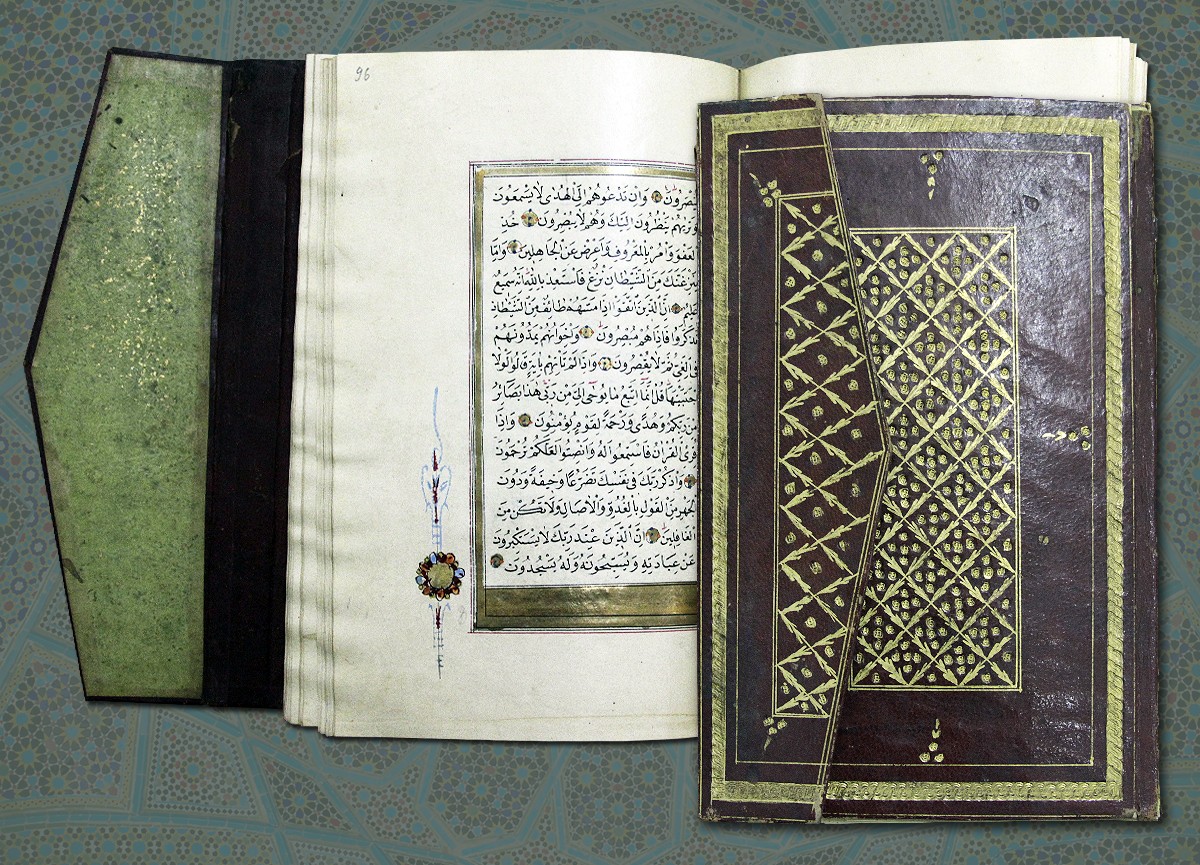 96
ينصرون وَاِنْ تَدْعُوهُمْ اِلَى الْهُدٰى لَا يَسْمَعُوا
وَتَرٰيهُمْ يَنْظُرُونَ اِلَيْكَ وَهُمْ لَا يُبْصِرُونَ خُذِ
الْعَفْوَ وَأْمُرْ بِالْعُرْفِ وَاَعْرِضْ عَنِ الْجَاهِلِينَ وَاِمَّا
يَنْزَغَنَّكَ مِنَ الشَّيْطَانِ نَزْغٌ فَاسْتَعِذْ بِاللّٰهِ اِنَّهُ سَمِيعٌ
عَلِيمٌ اِنَّ الَّذِينَ اتَّقَوْا اِذَا مَسَّهُمْ طَائِفٌ مِنَ الشَّيْطَانِ
تَذَكَّرُوا فَاِذَا هُمْ مُبْصِرُونَ وَاِخْوَانُهُمْ يَمُدُّونَهُمْ
فِي الْغَيِّ ثُمَّ لَا يُقْصِرُونَ وَاِذَا لَمْ تَأْتِهِمْ بِاٰيَةٍ قَالُوا لَوْلَا
اجْتَبَيْتَهَا قُلْ اِنَّمَا اَتَّبِعُ مَا يُوحٰى اِلَيَّ مِنْ رَبِّي هٰذَا بَصَائِرُ
مِنْ رَبِّكُمْ وَهُدًى وَرَحْمَةٌ لِقَوْمٍ يُؤْمِنُونَ وَاِذَا
قُرِئَ الْقُرْاٰنُ فَاسْتَمِعُوا لَهُ وَاَنْصِتُوا لَعَلَّكُمْ تُرْحَمُونَ
وَاذْكُرْ رَبَّكَ فِي نَفْسِكَ تَضَرُّعًا وَخِيفَةً وَدُونَ
الْجَهْرِ مِنَ الْقَوْلِ بِالْغُدُوِّ وَالْاٰصَالِ وَلَا تَكُنْ مِنَ
الْغَافِلِينَ اِنَّ الَّذِينَ عِنْدَ رَبِّكَ لَا يَسْتَكْبِرُونَ
عَنْ عِبَادَتِهِ وَيُسَبِّحُونَهُ وَلَهُ يَسْجُدُونَ